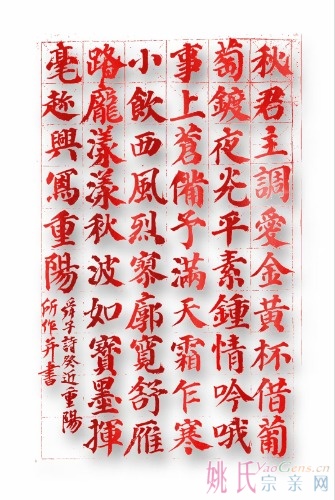 秋君主調愛金黃杯借葡
萄鍍夜光平素鍾情吟哦
事上蒼備予滿天霜乍寒
小飲西風烈寥廓寬舒雁
路龐漾漾秋波如寶墨揮
毫趂興寫重陽
舜子詩癸近重陽
所作并書
姚氏YaoGens.cn
宗亲网